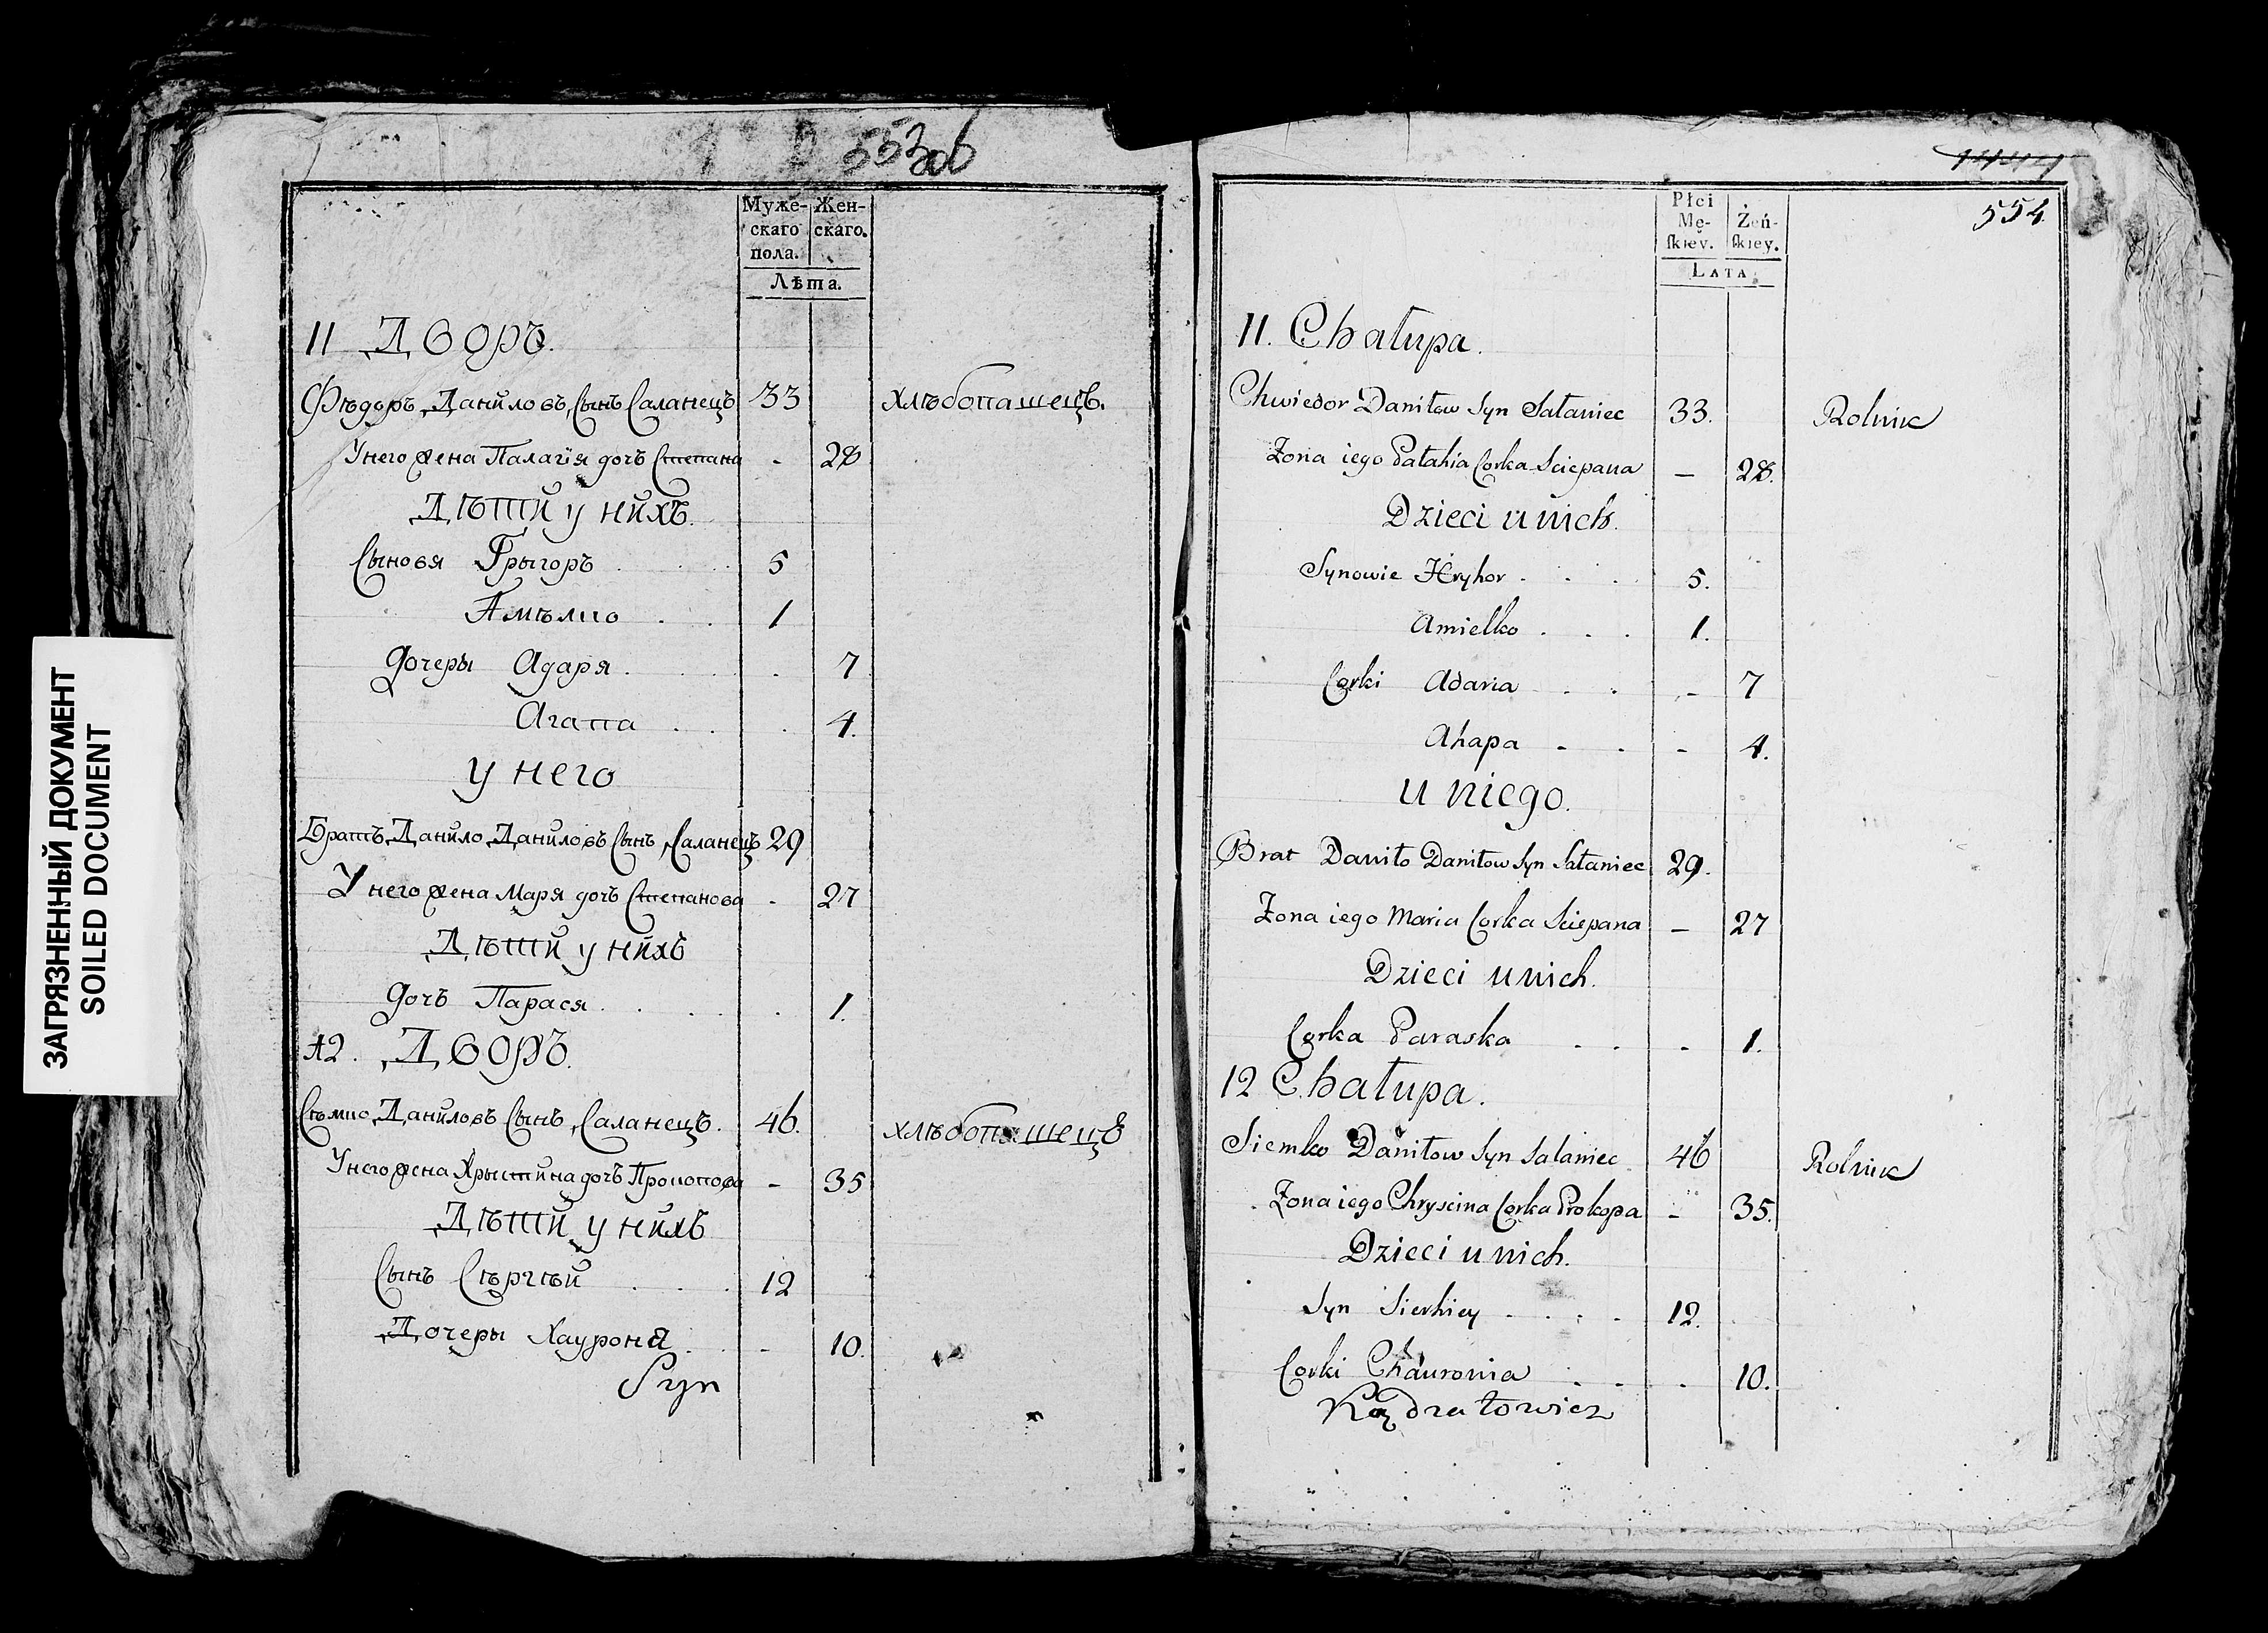 ЗАГРЯЗНЕННЫЙ ДОКУМЕНТ
SOILED DOCUMENT
553об
Муже-скаго пола. Жен-скаго.
Лѣта.
11 Дворъ.
Фѣдоръ Данйловъ Сынъ Саланецъ 33 хлѣбопашецъ.
Унего жена Палагія дочъ Степана - 28
Дѣтй у нйхъ.
Сыновя Грыгоръ . . . 5
Амѣлко . . 1
Дочеры Адаря . . . 7
Агапа . . . 4.
у него
Братъ Данйло Данйловъ Сынъ Саланецъ 29
У него жена Маря дочъ Степанова - 27
Дѣтй у нйхъ
Дочъ Парася . . . . 1.
12. Дворъ.
Сѣмко Данйловъ Сынъ Саланецъ. 46. хлѣбопашецъ
Унего жена Хрыстйна дочъ Прокопова - 35
Дѣтй у нйхъ
Сынъ Сѣргѣй . . . 12
Дочеры Хауроня . . - 10.
Syn
554
Płci Mę-ſkiey. Żeń-ſkiey.
LATA.
11. Chałupa.
Chwiedor Daniłow Syn Sałaniec 33. Rolnik
Zona iego Pałahia Corka Sciepana — 28.
Dzieci u nich.
Synowie Hryhor . . . 5.
Amielko . . . 1.
Corki Adaria . . - 7
Ahapa - . - 4.
u niego.
Brat Daniło Daniłow Syn Sałaniec 29.
Zona iego Maria Corka Sciepana — 27
Dzieci u nich.
Corka Paraska . . - 1.
12 Chałupa.
Siemko Daniłow Syn Salaniec 46 Rolnik
Zona iego Chryscina Corka Prokopa - 35.
Dzieci u nich.
Syn Sierhiey . . . 12.
Corki Chauronia . . - 10.
Kądratowicz